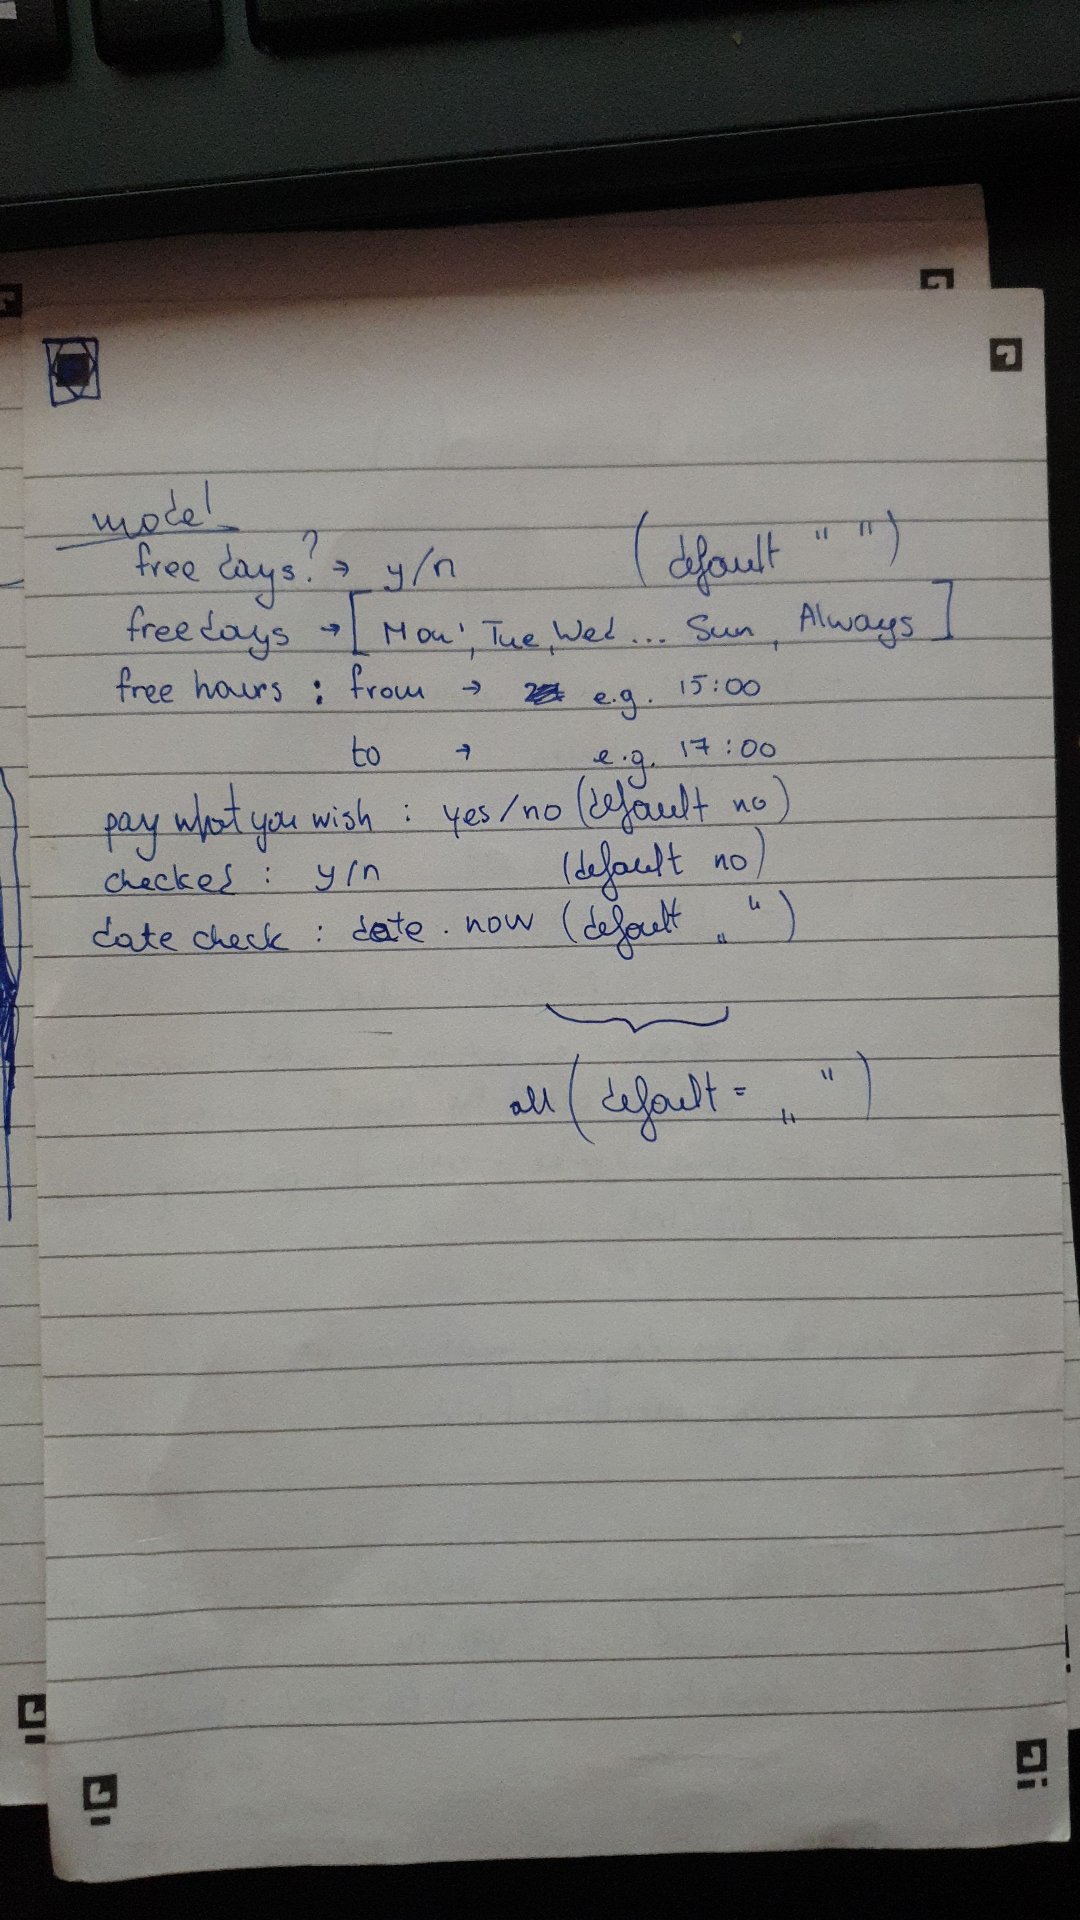 model
free days? → y/n (default " ")
freedays → [Mon, Tue, Wed ... Sun, Always]
free hours : from → e.g. 15:00
to → e.g. 17:00
pay what you wish : yes/no (default no)
checked : y/n (default no)
date check : date . now (default „ “)
all (default = „ “)